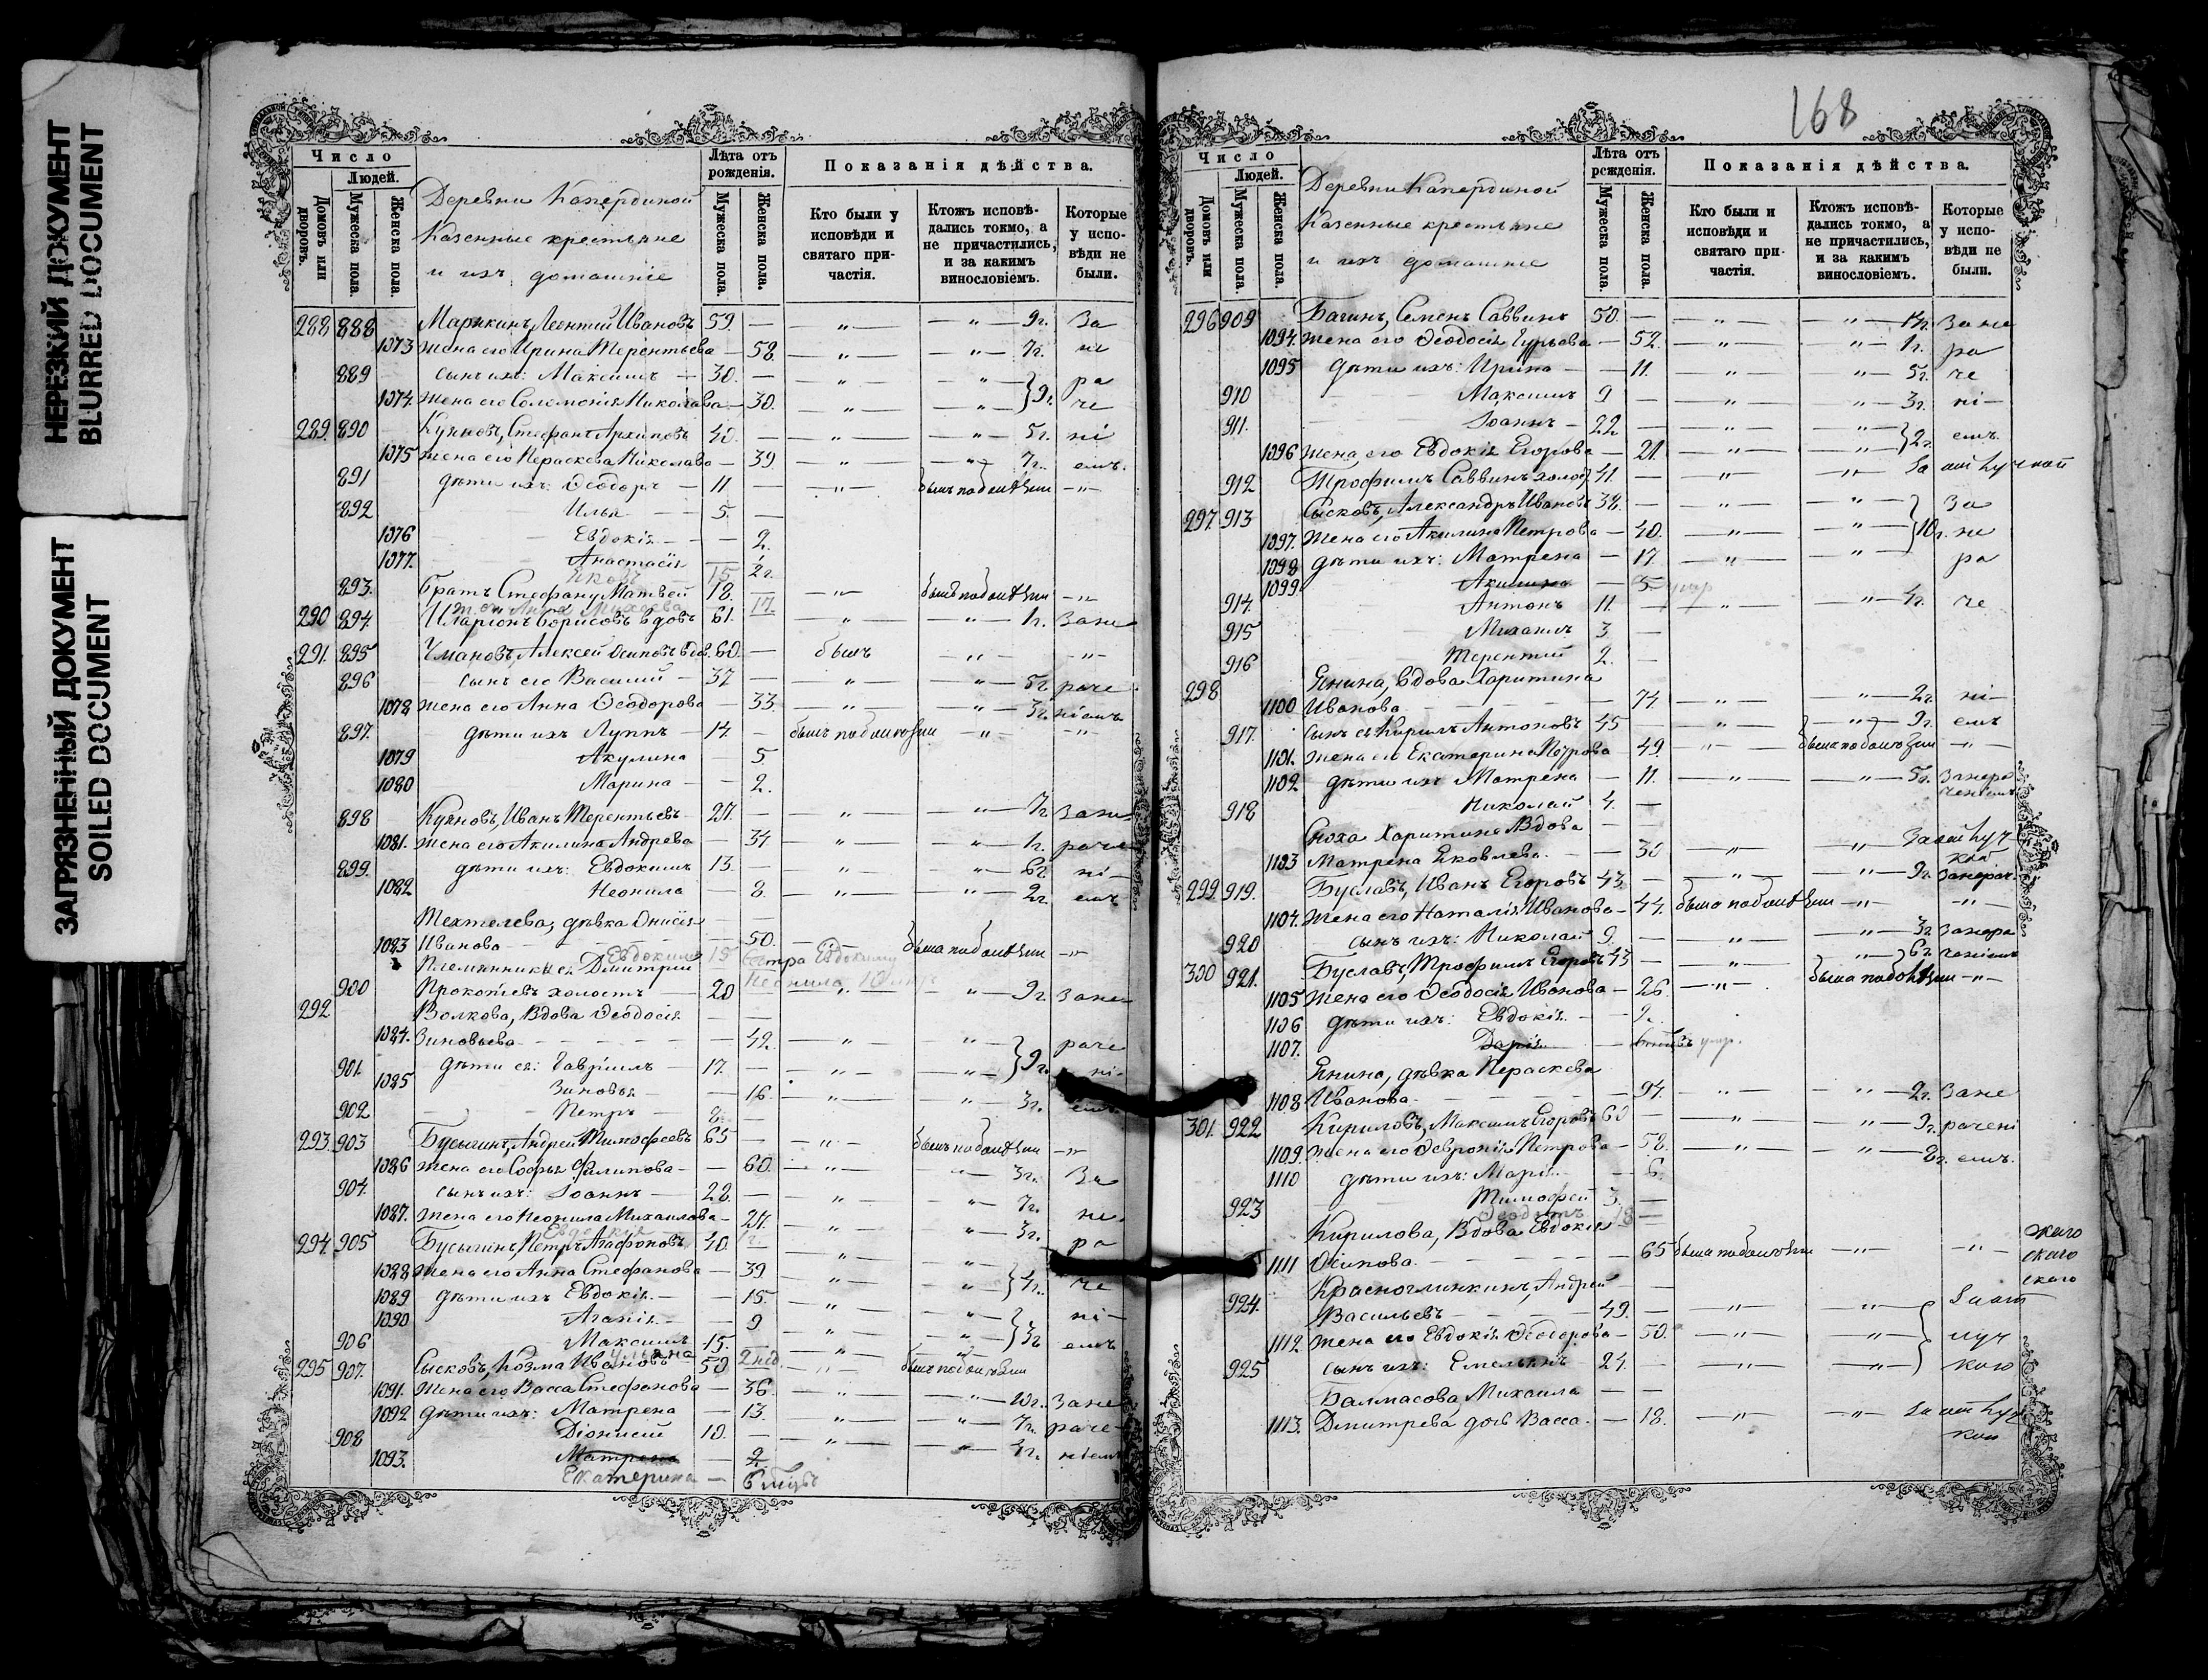 НЕРЕЗКИЙ ДОКУМЕНТ
BLURRED DOCUMENT
ЗАГРЯЗНЕННЫЙ ДОКУМЕНТ
SOILED DOCUMENT
Число
Людей.
Домовъ или дворовъ.
Мужеска пола.
Женска пола.
Деревни Капердиной
Казенные крестьяне
и ихъ домашніе
Лѣта отъ рожденія.
Мужеска пола.
Женска пола.
Показанія дѣйства.
Кто были у исповѣди и святаго причастія.
Ктожъ исповѣдались токмо, а не причастились, и за какимъ винословіемъ.
Которые у исповѣди не были.
288 888 Марикинъ, Леонтій Ивановъ 59. — „ — „ — 9г. За
1073 жена его Ирина Терентьева — 58. — „ — „ — 7г. не
889 сынъ ихъ: Максимъ — 30. — „ — „ — ра
1074. жена его Соломонія Николаева — 30. — „ — „ — 9г. че
289. 890 Куяновъ, Стефанъ Архиповъ 40. — „ — „ — 5г. ні
1075 жена его Пераскева Николаева — 39. — „ — „ — 7г. емъ.
891 дѣти ихъ: Ѳеодоръ — 11 — „ — былъ по болѣзни — „ —
892 Илья — 5. —
1076 Евдокія — 2.
1077. Анастасія — 2г.
Яковъ 15
893. Братъ Стефану Матвей 18. — „ — былъ по болѣзни — „ —
290 894 Иларіонъ Борисовъ вдовъ 61. — „ — „ — 1г. Зане
291. 895 Чмановъ, Алексей Осиповъ вдов. 60. — былъ — „ — „ —
896 сынъ его Василий — 37 — „ — „ — 5г. раче
1078 жена его Анна Ѳеодорова — 33. — „ — „ — 3г. ніемъ
897. дѣти ихъ Луппъ — 14. — былъ по болѣзни — „ — „ —
1079 Акулина — 5
1080 Марина — 2.
898 Куяновъ, Иванъ Терентьевъ 27. — „ — „ — 7г. Зане
1081. жена его Акилина Андрева — 34 — „ — „ — 1г. раче
899. дѣти ихъ: Евдокимъ 13. — „ — „ — 6г. ні —
1082 Неонила — 8. — „ — „ — 2г. емъ
Техтелева, дѣвка Онисія — —
1083 Иванова — 50. была по болѣзни — „ —
Племянникъ ея Дмитрий
900 Прокопіевъ холостъ — 20 — „ — „ — 9г. Зане
292 Волкова, Вдова Ѳеодосія — —
1084. Зиновьева — 42. — „ — „ — раче
901. дѣти ея: Гавріилъ — 17. — „ — „ — 9г. ні —
1085 Зиновья — 16. — „ — „ — 3г. емъ
902 Петръ — 8. —
293. 903 Бусыгинъ, Андрей Тимофеевъ 65 — „ — былъ по болѣзни — „ —
1086 жена его Софья Филипова — 60. — „ — 3г. За
904. сынъ ихъ: Іоаннъ — 28. — „ — „ — 7г.
1087. жена его Неонила Михаилова — 27. — „ — „ — 3г. не
294. 905 Бусыгинъ, Петръ Агафоновъ 40. — „ — „ — ра
1088 жена его Анна Стефанова — 39 — „ — „ — 4г. че
1089 дѣти ихъ Евдокія — 15. — „ — „ —
1090 Агапія — 9 — „ — „ — ні —
906 Максимъ 15. — „ — „ — 3г. емъ
295 907. Сысковъ, Козма Ивановъ 50 — „ — былъ по болѣзни
1091. жена его Васса Стефанова — 36. — „ — „ — 10г. Зане
1092 дѣти ихъ: Матрена — 13. — „ — „ — 7г. раче
908 Діонисій 10. — „ — „ — 4г. ніемъ
1093. Матрена — 2
Екатерина — 6 мцвъ
168
Число
Людей.
Домовъ или дворовъ.
Мужеска пола.
Женска пола.
Деревни Капердиной
Казенные крестьяне
и ихъ домашніе
Лѣта отъ рожденія.
Мужеска пола.
Женска пола.
Показанія дѣйства.
Кто были и исповѣди и святаго причастія.
Ктожъ исповѣдались токмо, а не причастились, и за какимъ винословіемъ.
Которые у исповѣди не были.
296 909 Багинъ, Семенъ Саввинъ 50. — „ — „ — Зане
1094. жена его Ѳеодосія Гурьева — 52. — „ — „ — 1г. ра
1095 дѣти ихъ: Ирина — 11. — „ — „ — 5г. че
910 Максимъ 9 — „ — „ — 3г. ні —
911. Іоаннъ — 22 — „ — „ —
1096 жена его Евдокія Егорова — 21. — „ — „ — 2г. емъ.
912 Трофимъ Саввинъ холос. 41. — „ — „ — За отлучкой
297. 913 Сысковъ, Александръ Ивановъ 38. — „ — „ — За
1097. жена его Акилина Петрова — 40. — „ — „ — 10г. не
1098 дѣти ихъ: Матрена — 17. — „ — „ — ра
1099 Акилина — 5 умр
914. Антонъ 11. — „ — „ — 4г. че
915 Михаилъ 3. —
916 Терентій 2. —
298 Янина, вдова Харитина
1100 Иванова — 74. — „ — „ — 2г. ні —
917. сынъ ея Кирилъ Антоновъ 45 — „ — „ — 9г. емъ
1101. жена его Екатерина Петрова — 49. — „ — была по болѣзни — „ —
1102 дѣти ихъ Матрена — 11. — „ — „ — 5г. Занера
ченіемъ
918 Николай 4. —
Сноха Харитине Вдова — —
1103 Матрена Яковлева. — 30 — „ — „ — За отлуч
кой
299. 919. Буславъ, Иванъ Егоровъ 43. — „ — „ — 9г. Занерач.
1104. жена его Наталія Иванова — 44. была по болѣзни — „ — „ —
920 сынъ ихъ: Николай 9. — „ — „ — 3г. Занера
300 921. Буславъ, Трофимъ Егоровъ 43 — „ — „ — 6г. ченіемъ
1105 жена его Ѳеодосія Иванова — 26. — „ — была по болѣзни — „ —
1106 дѣти ихъ: Евдокія — 2.
1107. Дарія — умр.
Янина, дѣвка Пераскева
1108 Иванова — 94. — „ — „ — 2г. Зане
301. 922 Кириловъ, Максимъ Егоровъ 60 — „ — „ — 9г. рачені
1109. жена его Ѳеврониія Петрова — 58. — „ — „ — 8г. емъ.
1110 дѣти ихъ: Марія — 6.
923 Тимофей 3. —
Кирилова, Вдова Евдокія
1111 Осипова. — 65 была по болѣзни — „ — „ —
Красноглинкинъ, Андрей
924. Васильевъ — 49. — „ — „ — За от
1112. жена его Евдокія Ѳеодорова — 50. — „ — „ — луч
925 сынъ ихъ: Емельянъ 21. — „ — „ — кою
Балмасова Михаила — —
1113. Дмитрева дочь Васса. — 18. — „ — „ — За отлуч
кой